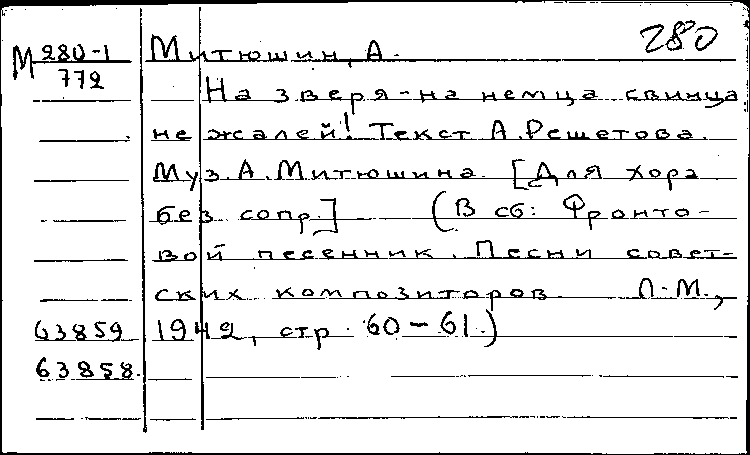 280
М 280-1 Митюшин, А.
772
На зверя-на немца свинца
не жалей! Текст А.Решетова.
Муз.А.Митюшина. [Для хора
без сопр.] (В сб: Фронто-
вой песенник. Песни совет-
ских композиторов. Л-М.,
63859 1942, стр. 60-61.)
63858.